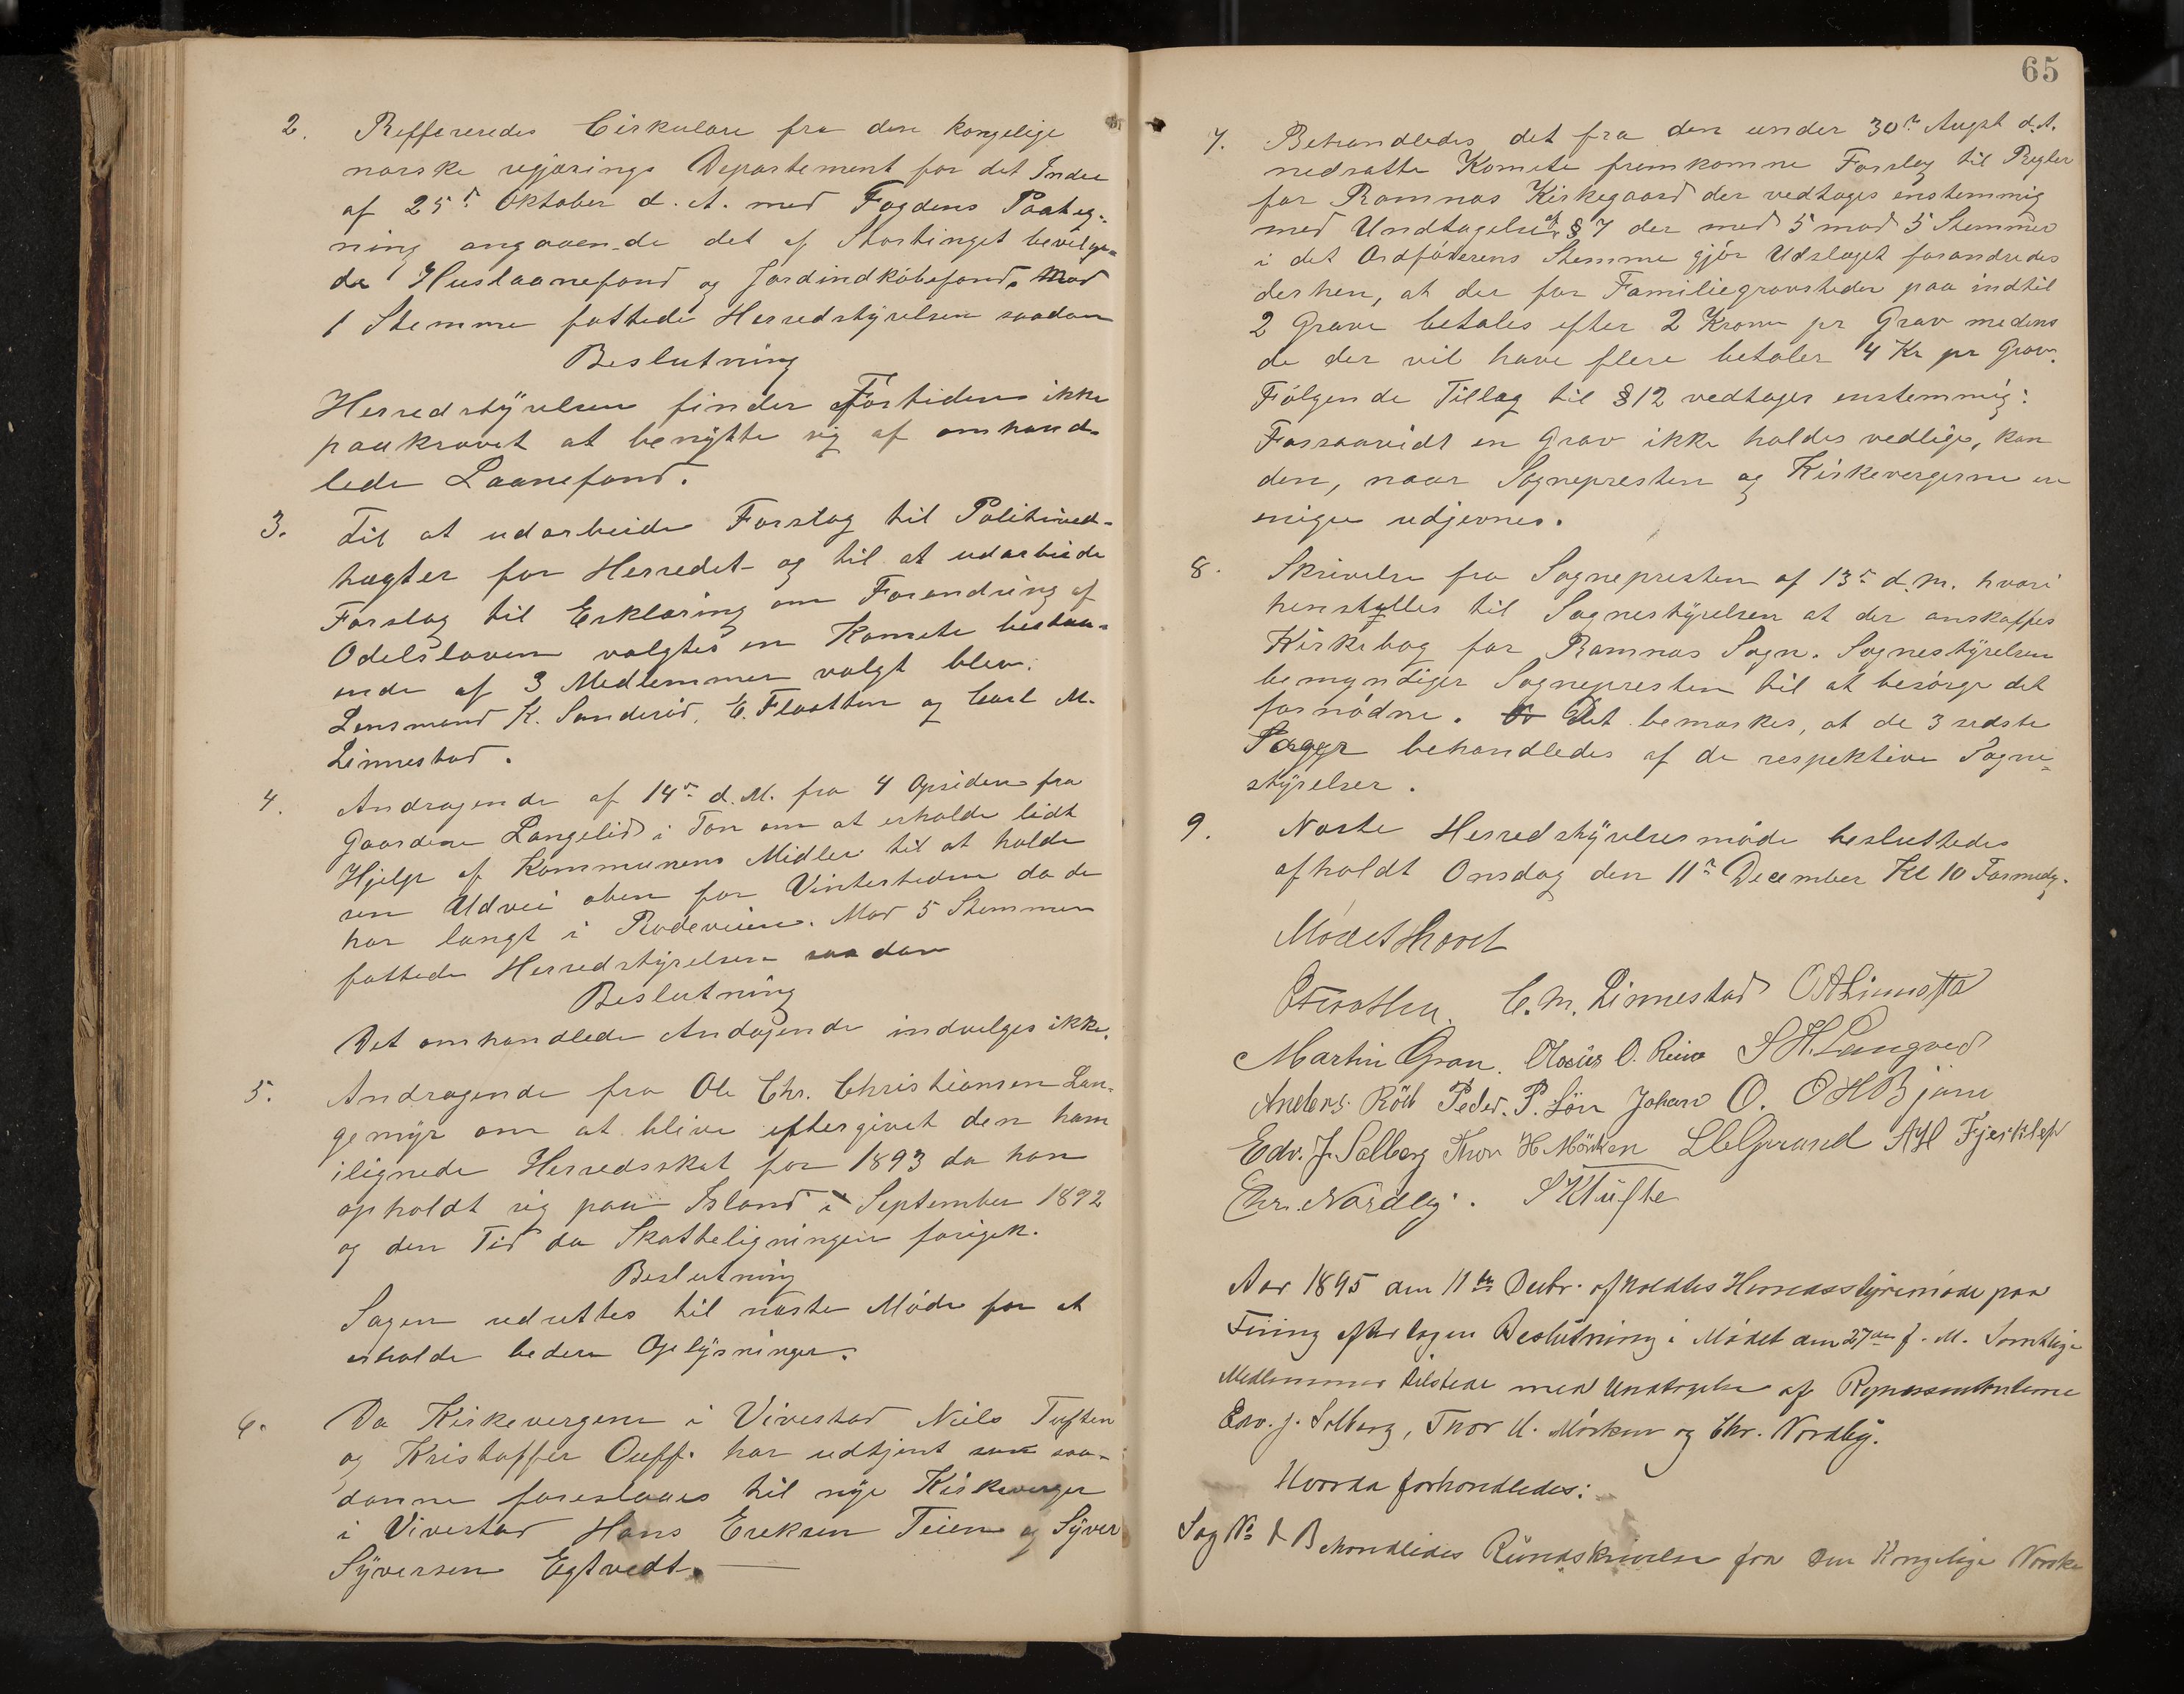 2. Reffereredes Cirkulære fra den kongelige
norske regjærings Departement for det Indre
af 25de Oktober d. A. med Fogdens Paateg-
ning angaaende det af Stortinget bevilge-
de Huslaanefond og Jordindkøbsfond. Mod
1 Stemme fattede Herredstyrelsen saadan
Beslutning
Herredstyrelsen finder Fortiden ikke
paakrævet at benytte sig af omhand-
lede Laanefond.
3. Til at udarbeide Forslag til Politived-
tægter for Herredet og til at udarbeide
Forslag til Erklæring om Forandring af
Odelsloven valgtes en Komite bestaa-
ende af 3 Medlemmer valgt blev:
Lensmand K. Sanderød, E. Flaatten og Carl M.
Linnestad.
4. Andragende af 14de d. M. fra 4 Opsidere fra
Gaardene Langelid i Ton om at erholde lidt
Hjelp af Kommunens Midler til at holde
sin Udvei aben for Vintertiden da de
har langt i Rodeveien. Mod 5 Stemmer
fattede Herredstyrelsen saadan
Beslutning
Det omhandlede Andagende indvilges ikke.
5. Andragende fra Ole Chr. Christiansen Lan-
gemyr om at blive eftergivet den ham
ilignede Herredsskat for 1893 da han
opholdt sig paa Island i September 1892
og den Tid da Skatteligningen forigik.
Beslutning
Sagen udsettes til næste Møde for at
erholde bedere Oplysninger.
6. Da Kirkevergene i Vivestad Niels Tuften
og Kristoffer Ouff. har udtjent som saa-
danne foreslaaes til nye Kirkeverger
i Vivestad Hans Ereksen Teien og Syver
Syversen Egtvedt.
65
7. Behandledes det fra den under 30te Augst d.A.
nedsatte Komite fremkomne Forslag til Regler
for Ramnæs Kirkegaard der vedtages enstemmig
med Undtagelse af § 7 der med 5 mod 5 Stemmer
i det Ordførerens Stemme gjør Udslaget forandredes
derhen, at der for Familiegravsteder paa indtil
2 Grave betales efter 2 Kroner pr Grav medens
de der vil have flere betaler 4 Kr pr Grav.
Følgende Tillæg til § 12 vedtages enstemmig:
Forsaavidt en Grav ikke holdes vedlige, kan
den, naar Sognepresten og Kirkevergerne er
enige udjevnes.
8. Skrivelse fra Sognepresten af 13de d.M. hvori
henstilles til Sognestyrelsen at der anskaffes
Kirkebog for Ramnæs Sogn. Sognestyrelsen
bemyndiger Sognepresten til at besørge det
fornødne. Det bemærkes, at de 3 sidste
Sager behandledes af de respektive Sogne-
styrelser.
9. Næste Herredstyrelsesmøde besluttedes
afholdt Onsdag den 11te December Kl 10 Formdg.
Mødet Hævet
E Flaatten. C. M. Linnestad O A Linnestad
Martin Gran. Olaus O. Reine S H. Langved
Anders Röd Peder. P. Sön Johan O. O H Bjune
Edv. J. Solberg Thor H Mörken A H Fjeskilep
Chr. Nordby. S K Tufte
Aar 1895 den 11te Decbr. afholdtes Herredsstyremøde paa
Firing efter tagen Beslutning i Mødet den 27de f. M. Samtlige
Medlemmer tilstede med Undtagelse af Repræsentanterne
Edv. J. Solberg, Thor H. Mörken og Chr. Nordby.
Hvorda forhandledes:
Sag No 1 Behandledes Rundskrivelse fra Den Kongelige Norske